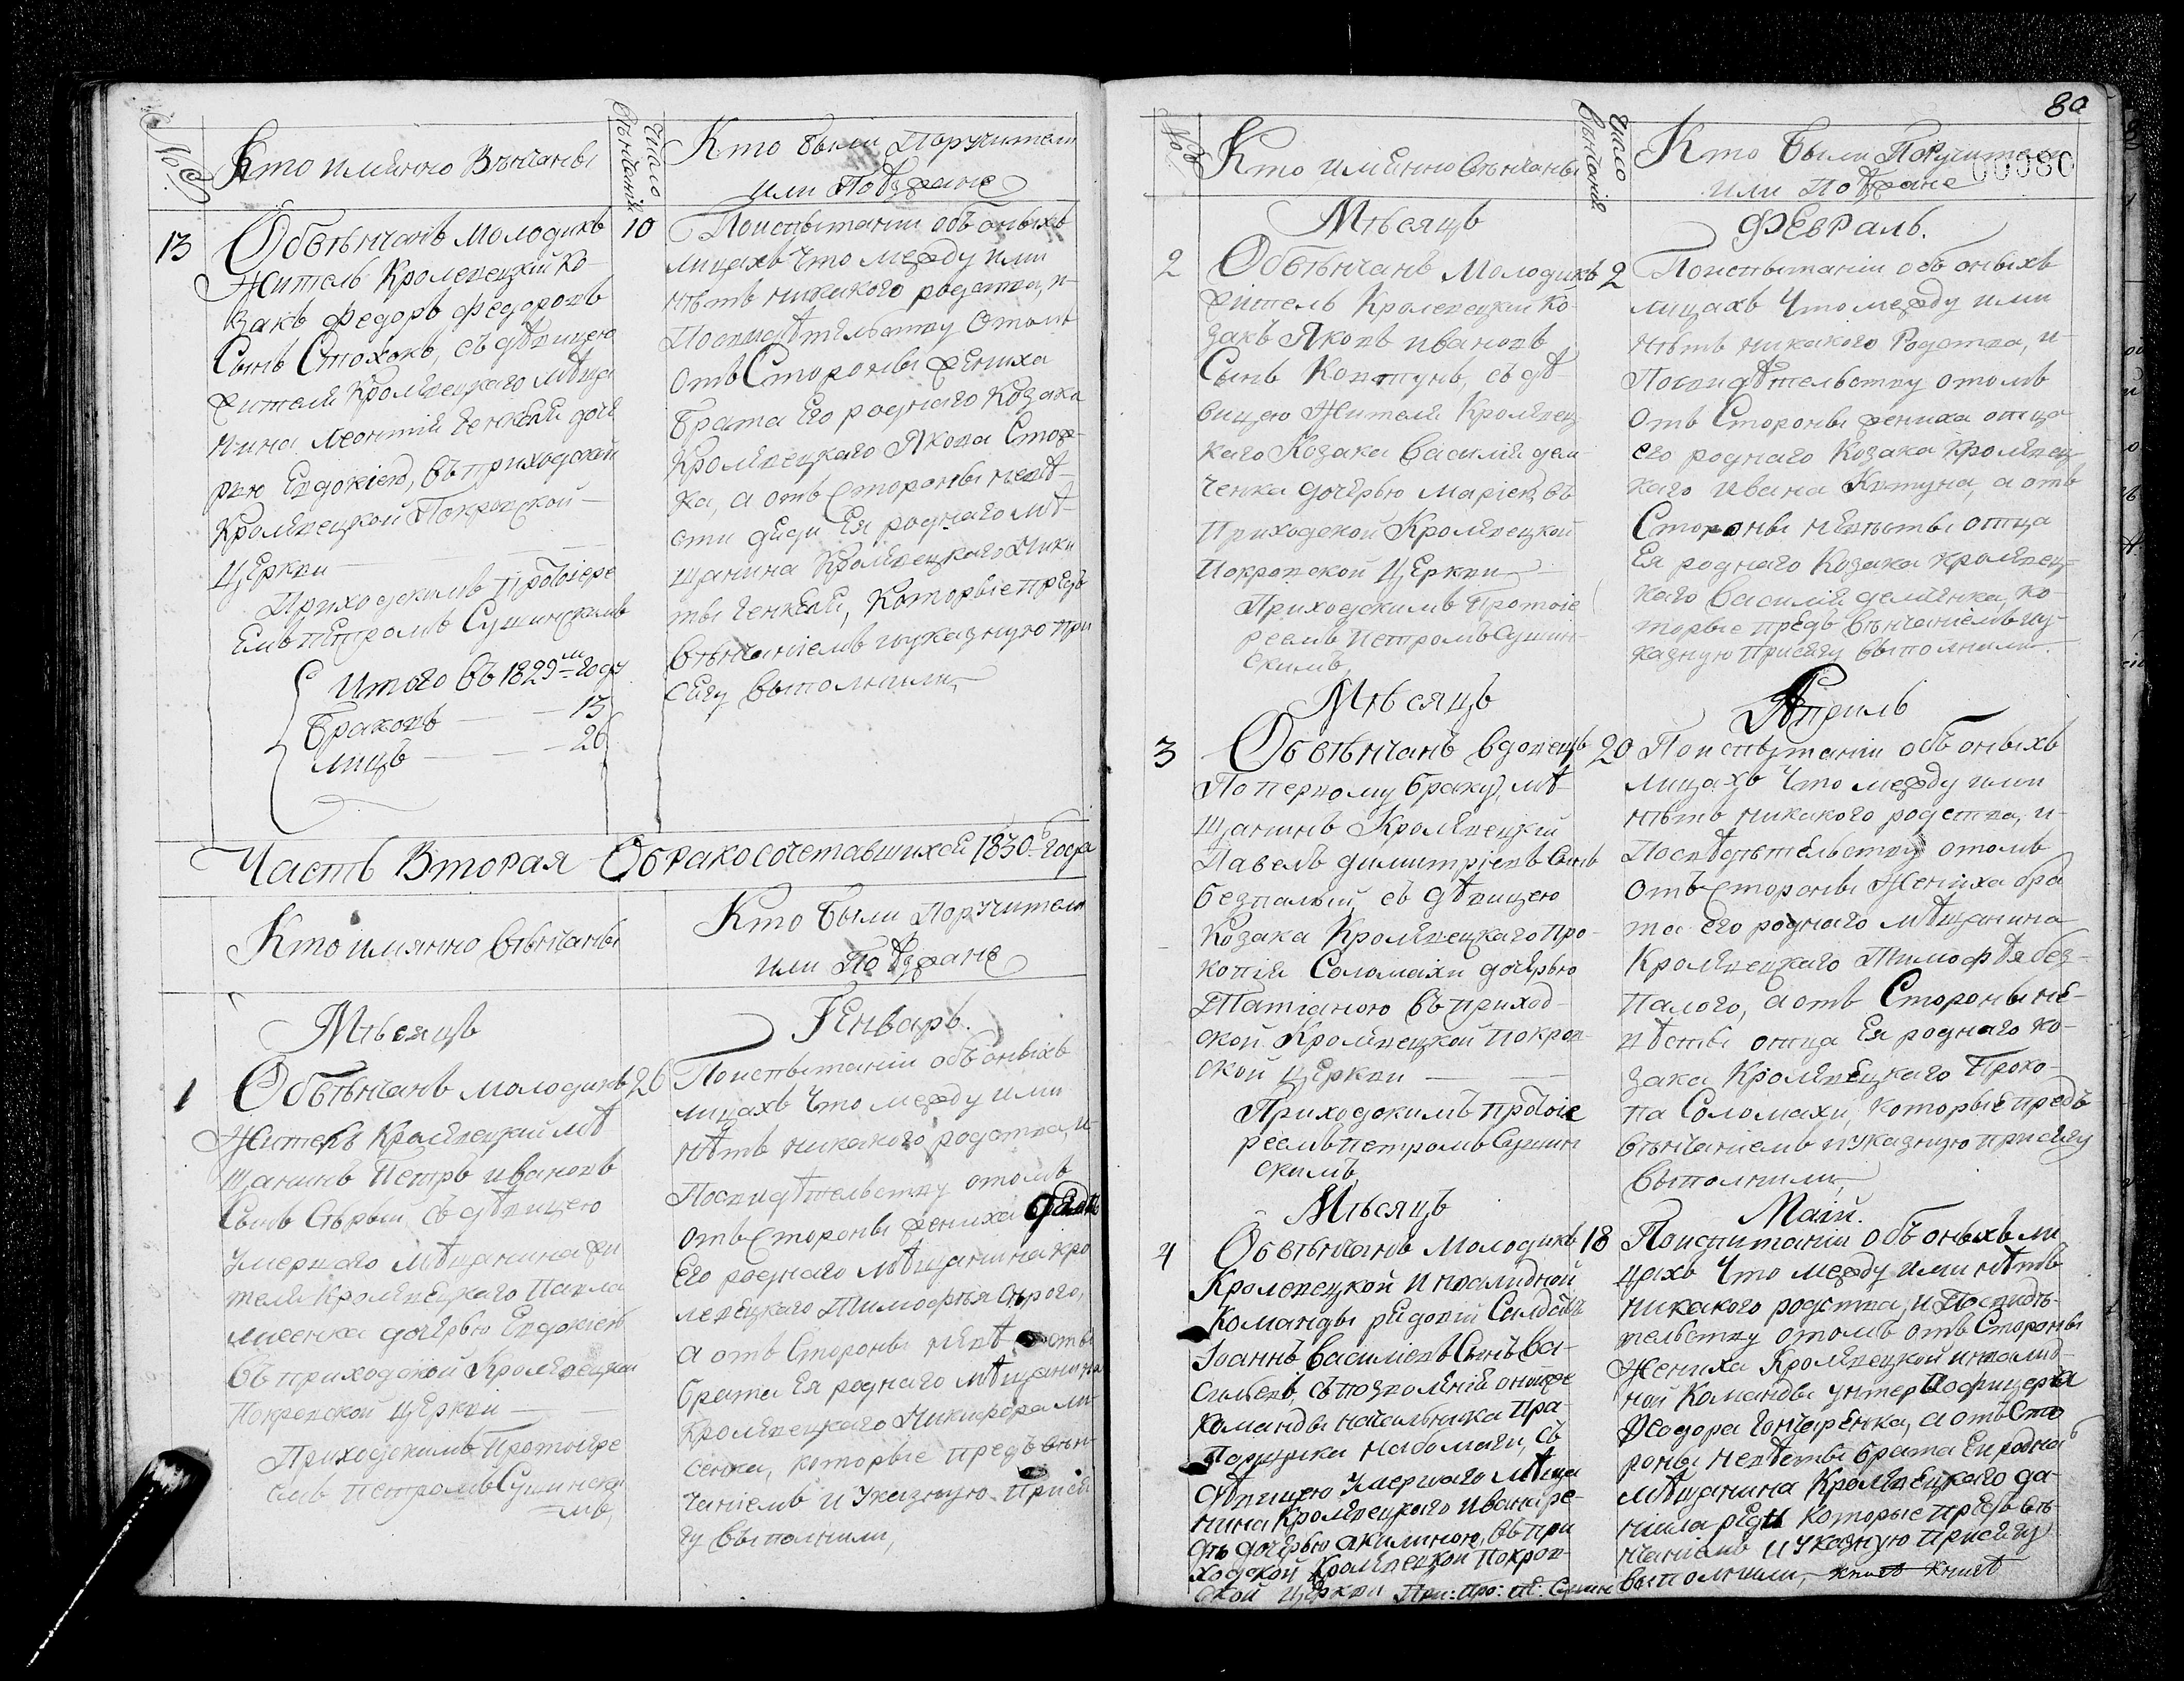 №
Кто имянно Вѣнчаны
Число Вѣнчанія
Кто были Поручители
или Поѣзжане
13
Обвѣнчанъ молодикъ
10
Житель Кролевецкій Ко-
закъ Федоръ Федоровъ
Сынъ Стожокъ, съ дѣвицею
жителя Кролѣвецкаго мѣща
нина Леонтія
рію Евдокіею, въ приходской
Кролѣвецкой Покровской
Церкви
Приходскимъ Протоіере
емъ Петромъ Сушинскимъ
Итого въ 1829м году
Браковъ — 13
лицъ — 26
Поиспытании объ оныхъ
лицахъ Что между ими
нѣтъ никакого родства, и
Посвидѣтельству отомъ
отъ Стороны жениха
брата Его роднаго Козака
Кролѣвецкаго Якова Стож-
ка, а отъ стороны невѣ-
сти дяди Ея роднаго мѣ-
щанина Кролѣвецкаго Мики
ты, Которые предъ
Вѣнчаніемъ иуказную при
сягу Выполнили,
Часть Вторая Обракосочетавшихся 1830го года
Кто имянно Вѣнчаны
Кто были Поручители
или Поѣзжане
Мѣсяцъ
Генварь.
1
Обвѣнчанъ молодикъ
26
Житель Кролѣвецкій мѣ
щанинъ Петръ Ивановъ
Сынъ Сѣрый съ дѣвицею
умершаго мѣщанина жи
теля Кролѣвецкаго Павла
Лисенка дочѣрью Евдокіею
въ приходской Кролѣвецкой
Покровской Церкви
Приходскимъ Протоіере
емъ Петромъ Сушински
мъ,
Поиспытаніи объ оныхъ
лицахъ Что между ими
нѣтъ никакого родства, и
Посвидѣтельству отомъ
отъ Стороны жениха дяди
Его роднаго мѣщанина Кро
левецкаго Тимофѣя Сѣрого,
а отъ Стороны невѣсты
брата Ея роднаго мѣщанина
Кролѣвецкаго Никифора Ли
сенка, которые предъ вѣн
чаніемъ и Указную Прися
гу Выполнили,
80
00080
№
Кто имянно Вѣнчаны
Число Вѣнчанія
Кто Были Поручители
или Поѣзжане
Мѣсяцъ
Февраль.
2
Обвѣнчанъ Молодикъ
2
житель Кролевецкій Ко-
закъ Яковъ Ивановъ
Сынъ Ковтунъ, съ дѣ-
вицею Жителя Кролѣвец
каго Козака Василія Дем
ченка дочѣрью Маріею въ
Приходской Кролѣвецкой
Покровской Церкви
Приходскимъ Протоіе
реемъ Петромъ Сушин
скимъ,
Поиспытаніи объ оныхъ
лицахъ Что между ими
нѣтъ никакого Родства, и
Посвидѣтельству отомъ
отъ Стороны жениха отца
его роднаго Козака Кролѣвец
каго Ивана Ковтуна, а отъ
Стороны нѣвѣсты отца
Ея роднаго Козака Кролѣвец
каго Василія, ко-
торые предъ вѣнчаніемъ иу-
казную Присягу выполнили.
Мѣсяцъ
Априль
3
Обвѣнчанъ вдовецъ
20
По первому браку, мѣ
щанинъ Кролѣвецкій
Павелъ Димитріевъ Сынъ
безпалый, съ дѣвицею
Козака Кролѣвецкаго Про-
копія Соломахи дочѣрью
Татіаною въ приход-
ской Кролѣвецкой Покров
ской Церкви
Приходскимъ протоіе
реемъ Петромъ Сушин
скимъ,
Поиспытаніи объ оныхъ
лицахъ Что между ими
нѣтъ никакого родства, и
Посвѣдѣтельству отомъ
отъ Стороны Жениха бра
та его роднаго мѣщанина
Кролѣвецкаго Тимофѣя без-
палого, а отъ Стороны не-
вѣсты отца Ея роднаго ко-
зака Кролѣвецкаго Проко-
па Соломахи, которые предъ
вѣнчаніемъ иуказную присягу
выполнили,
Мѣсяцъ
Маій.
4
Обвѣнчанъ Молодикъ
18
Кролевецкой Инвалидной
Команды рядовій Салдатъ
Іоаннъ Василіевъ Сынъ Ва-
сильевъ, съ позволенія оной же
команды начальника Пра-
порщика, съ
дѣвицею умершаго мѣща
нина Кролѣвецкаго Ивана Ре-
ды дочѣрью Акилиною, въ при
ходской Кролѣвецкой Покров-
ской Церкви При: Про: Пе: Сушин
Поиспитаніи объ оныхъ ли
цахъ Что между ими нѣтъ
никакого родства, и Посвидѣ-
тельству отомъ отъ Стороны
Жениха Кролѣвецкой инвалид
ной Команды унтеръ офицера
Феодора Гончаренка, а отъ Сто
роны невѣсты брата Ея родна
мѣщанина Кролѣвецкаго Да-
нила Реды которые предъ вѣ-
нчаніемъ и указную присягу
выполнили,